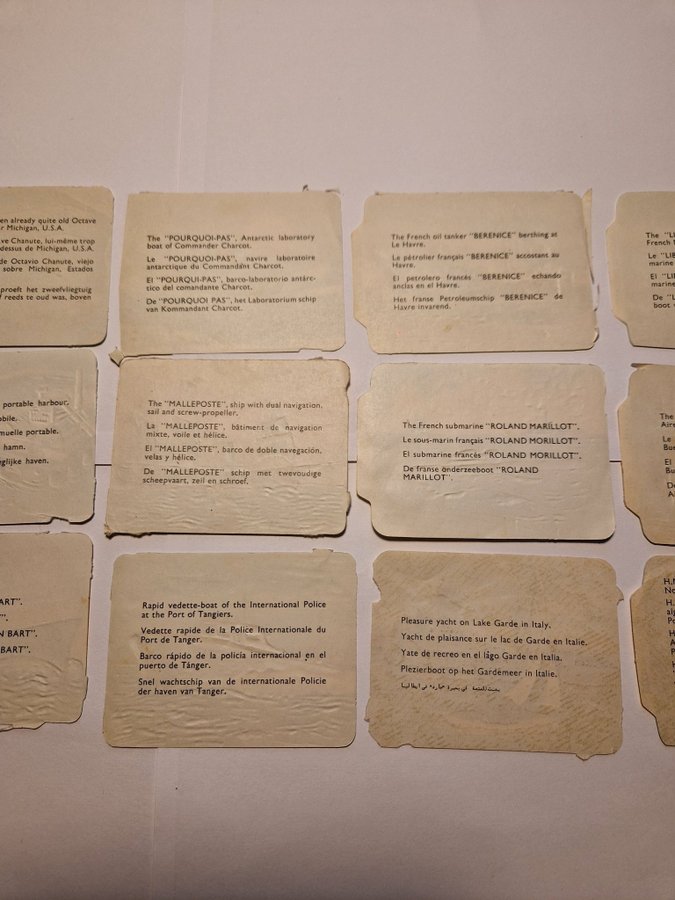 en already quite old Octave
r Michigan, U.S.A.
ve Chanute, lui-même trop
dessus de Michigan, U.S.A.
de Octavio Chanute, viejo
sobre Michigan, Estados
proeft het zweefvliegtuig
f reeds te oud was, boven
The "POURQUOI-PAS", Antarctic laboratory
boat of Commander Charcot.
Le "POURQUOI-PAS", navire laboratoire
antarctique du Commandant Charcot.
El "POURQUI-PAS", barco-laboratorio antárc-
tico del comandante Charcot.
De "POURQUOI PAS", het Laboratorium schip
van Kommandant Charcot.
The French oil tanker "BERENICE" berthing at
Le Havre.
Le pétrolier français "BERENICE" accostant au
Havre.
El petrolero francés "BERENICE" echando
anclas en el Havre.
Het franse Petroleumschip "BERENICE" de
Havre invarend.
The "LI
French
Le "LIB
marine
El "LI
marine
De "L
boot
portable harbour.
bile.
muelle portable.
hamn.
glijke haven.
The "MALLEPOSTE", ship with dual navigation,
sail and screw-propeller.
La "MALLEPOSTE", bâtiment de navigation
mixte, voile et hélice.
El "MALLEPOSTE", barco de doble navegación,
velas y hélice.
De "MALLEPOSTE" schip met twevoudige
scheepvaart, zeil en schroef.
The French submarine "ROLAND MARILLOT".
Le sous-marin français "ROLAND MORILLOT".
El submarino francés "ROLAND MORILLOT".
De franse onderzeeboot "ROLAND
MARILLOT".
The
Aire
Le
Bue
El
Bu
D
A
ART".
".
N BART".
BART".
Rapid vedette-boat of the International Police
at the Port of Tangiers.
Vedette rapide de la Police Internationale du
Port de Tanger.
Barco rápido de la policia internacional en el
puerto de Tánger.
Snel wachtschip van de internationale Policie
der haven van Tanger.
Pleasure yacht on Lake Garde in Italy.
Yacht de plaisance sur le lac de Garde en Italie.
Yate de recreo en el lágo Garde en Italia.
Plezierboot op het Gardemeer in Italie.
H.M
No
H.
alg
Po
H.
A
P